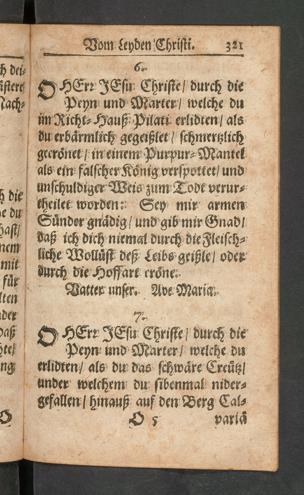 Vom Leyden Christi. 321
6.
O HErr JEsu Christe/ durch die
Peyn und Marter/ welche du
im Richt-Hauß Pilati erlidten/ als
du erbärmlich gegeißlet/ schmertzlich
gecrönet/ in einem Purpur-Mantel
als ein falscher König verspottet/ und
unschuldiger Weis zum Todt verur-
theilet worden: Sey mir armen
Sünder gnädig/ und gib mir Gnad/
daß ich dich niemal durch die Fleisch-
liche Wollüst deß Leibs geißle/ oder
durch die Hoffart cröne.
Vatter unser. Ave Maria.
7.
O HErr JEsu Christe/ durch die
Peyn und Marter/ welche du
erlidten/ als du das schwäre Creütz/
under welchem du sibenmal nider-
gefallen/ hinauß auf den Berg Cal-
O 5 variä